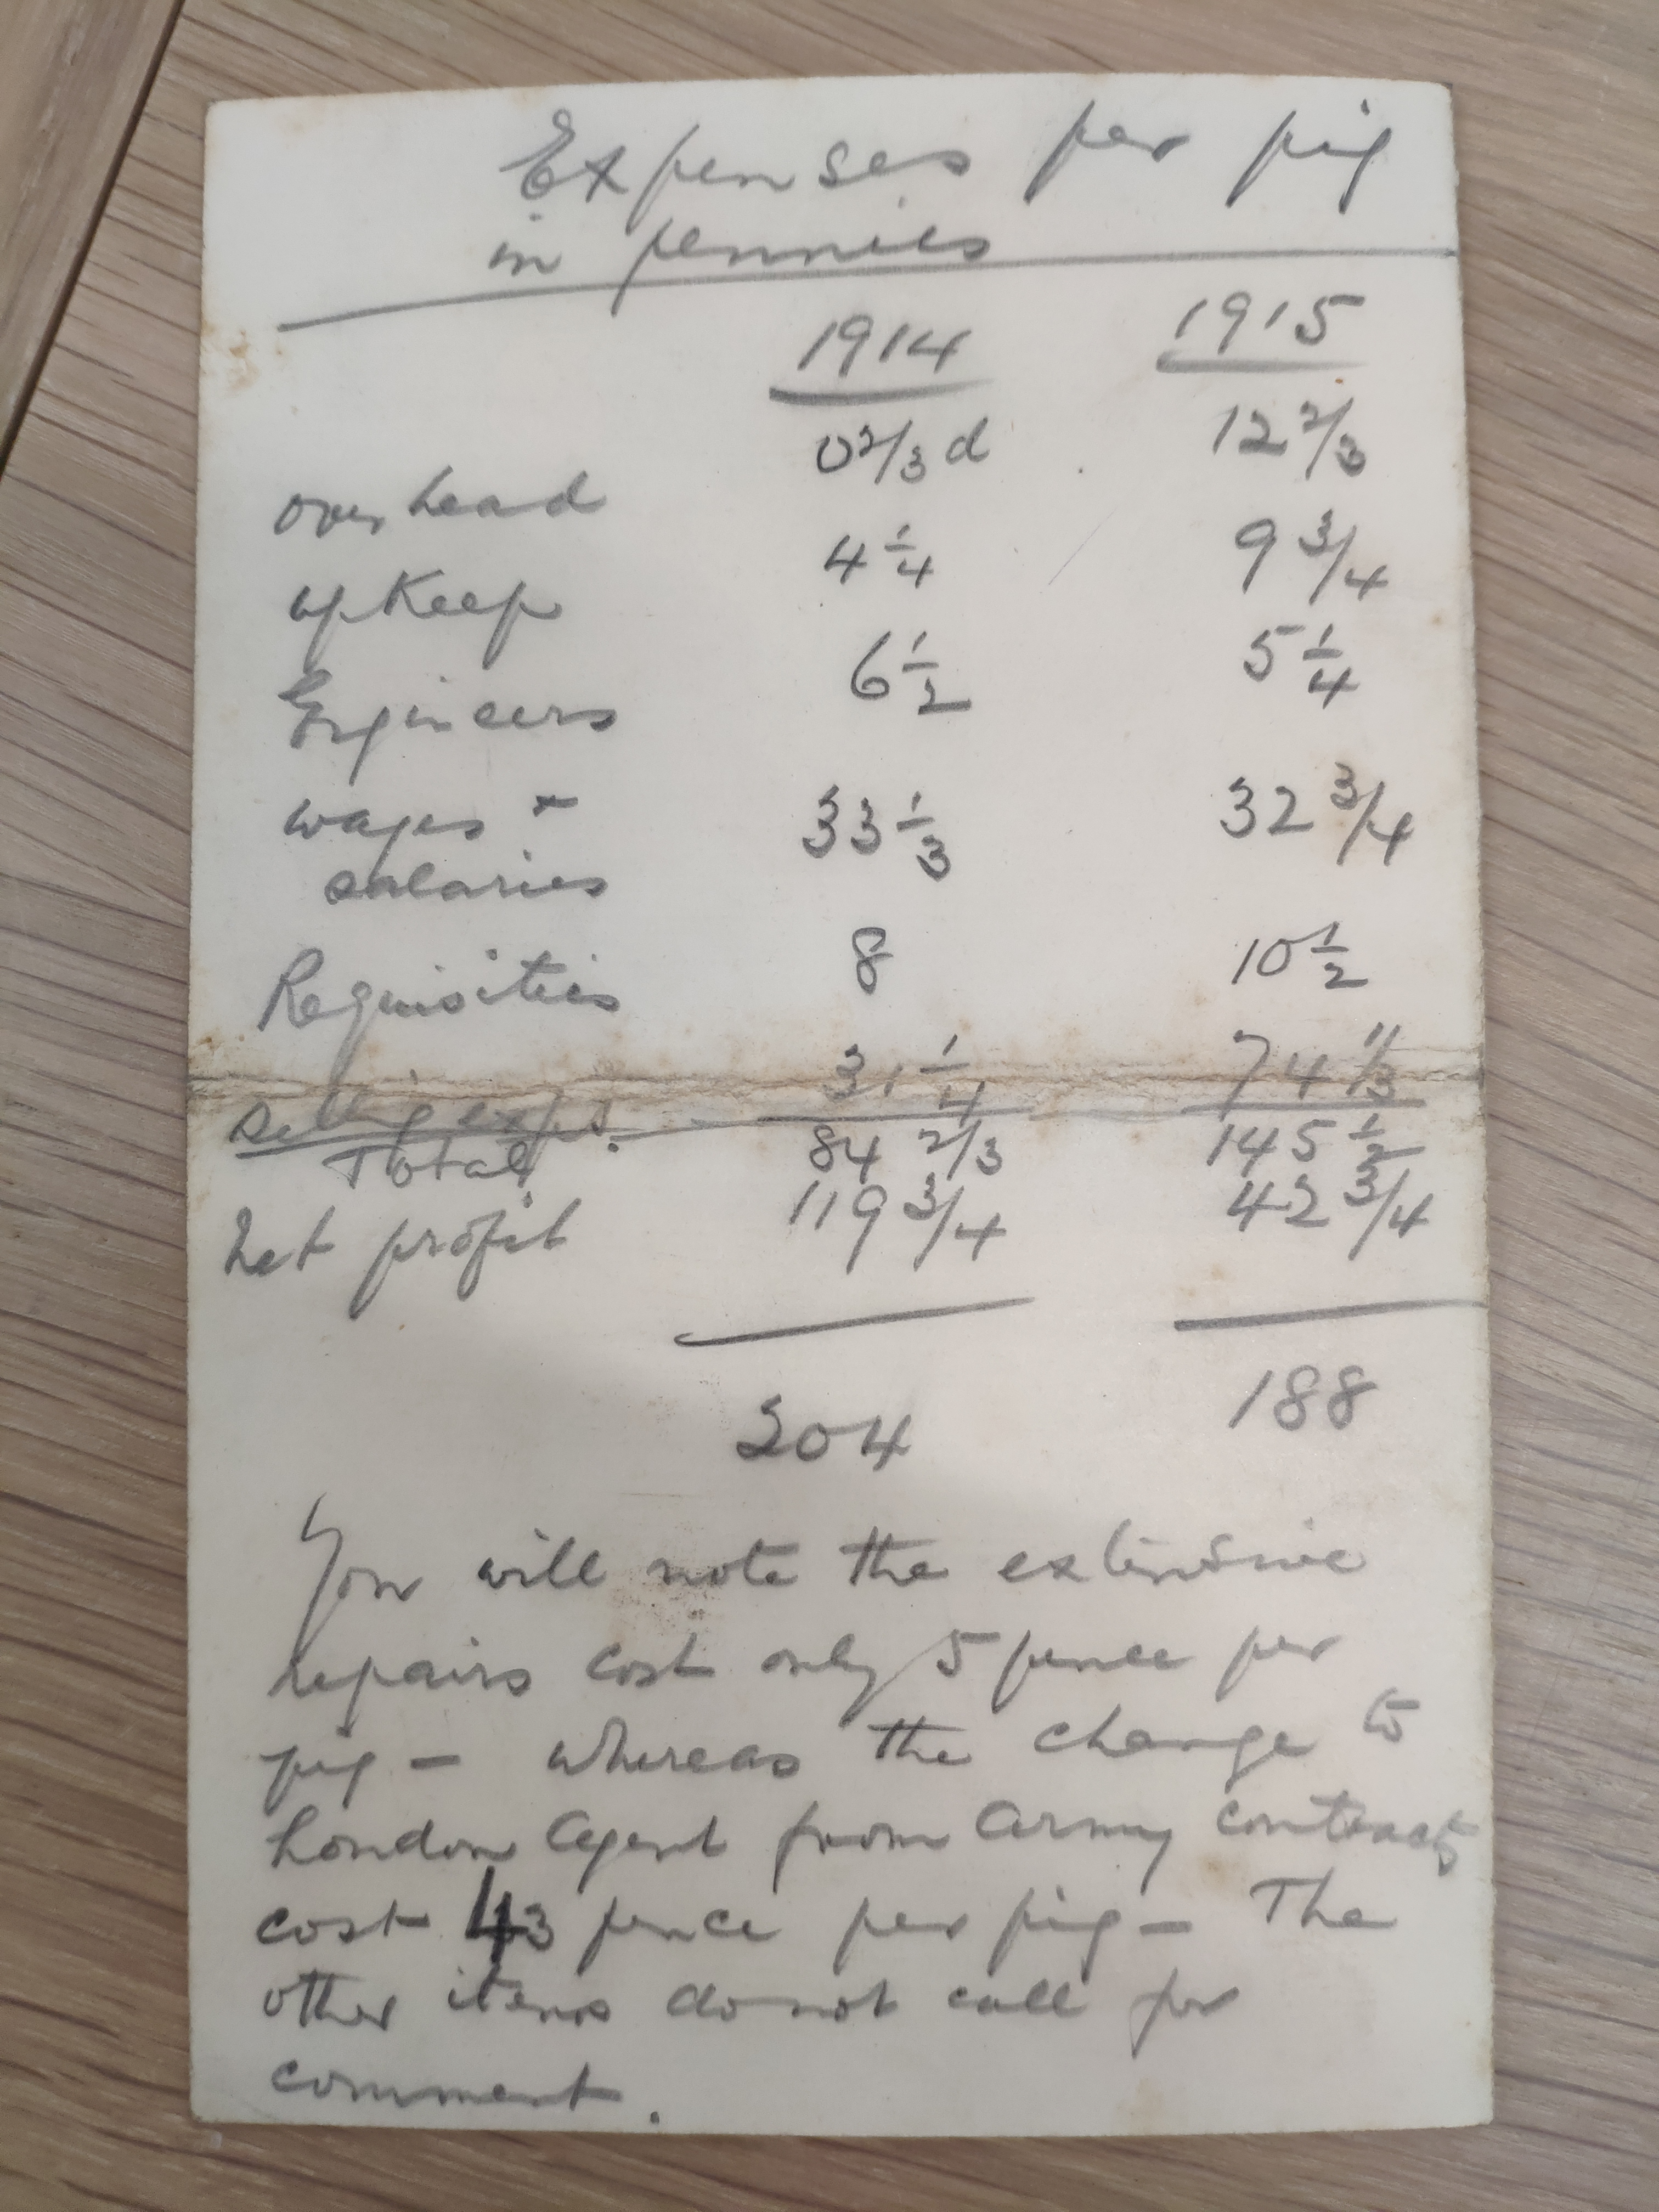 Expenses per pig
in pennies
1914 1915
overhead 0 2/3 d 12 2/3
upKeep 4 1/4 9 3/4
Engineers 6 1/2 5 1/4
wages + salaries 33 1/3 32 3/4
Requisities 8 10 1/2
Selling exps. 31 1/4 74 1/3
Total 84 2/3 145 1/2
Net profit 119 3/4 42 3/4
204 188
You will note the extensive
repairs cost only 5 pence per
pig – whereas the change to
London Agent from Army contracts
cost 43 pence per pig – The
other items do not call for
comment.